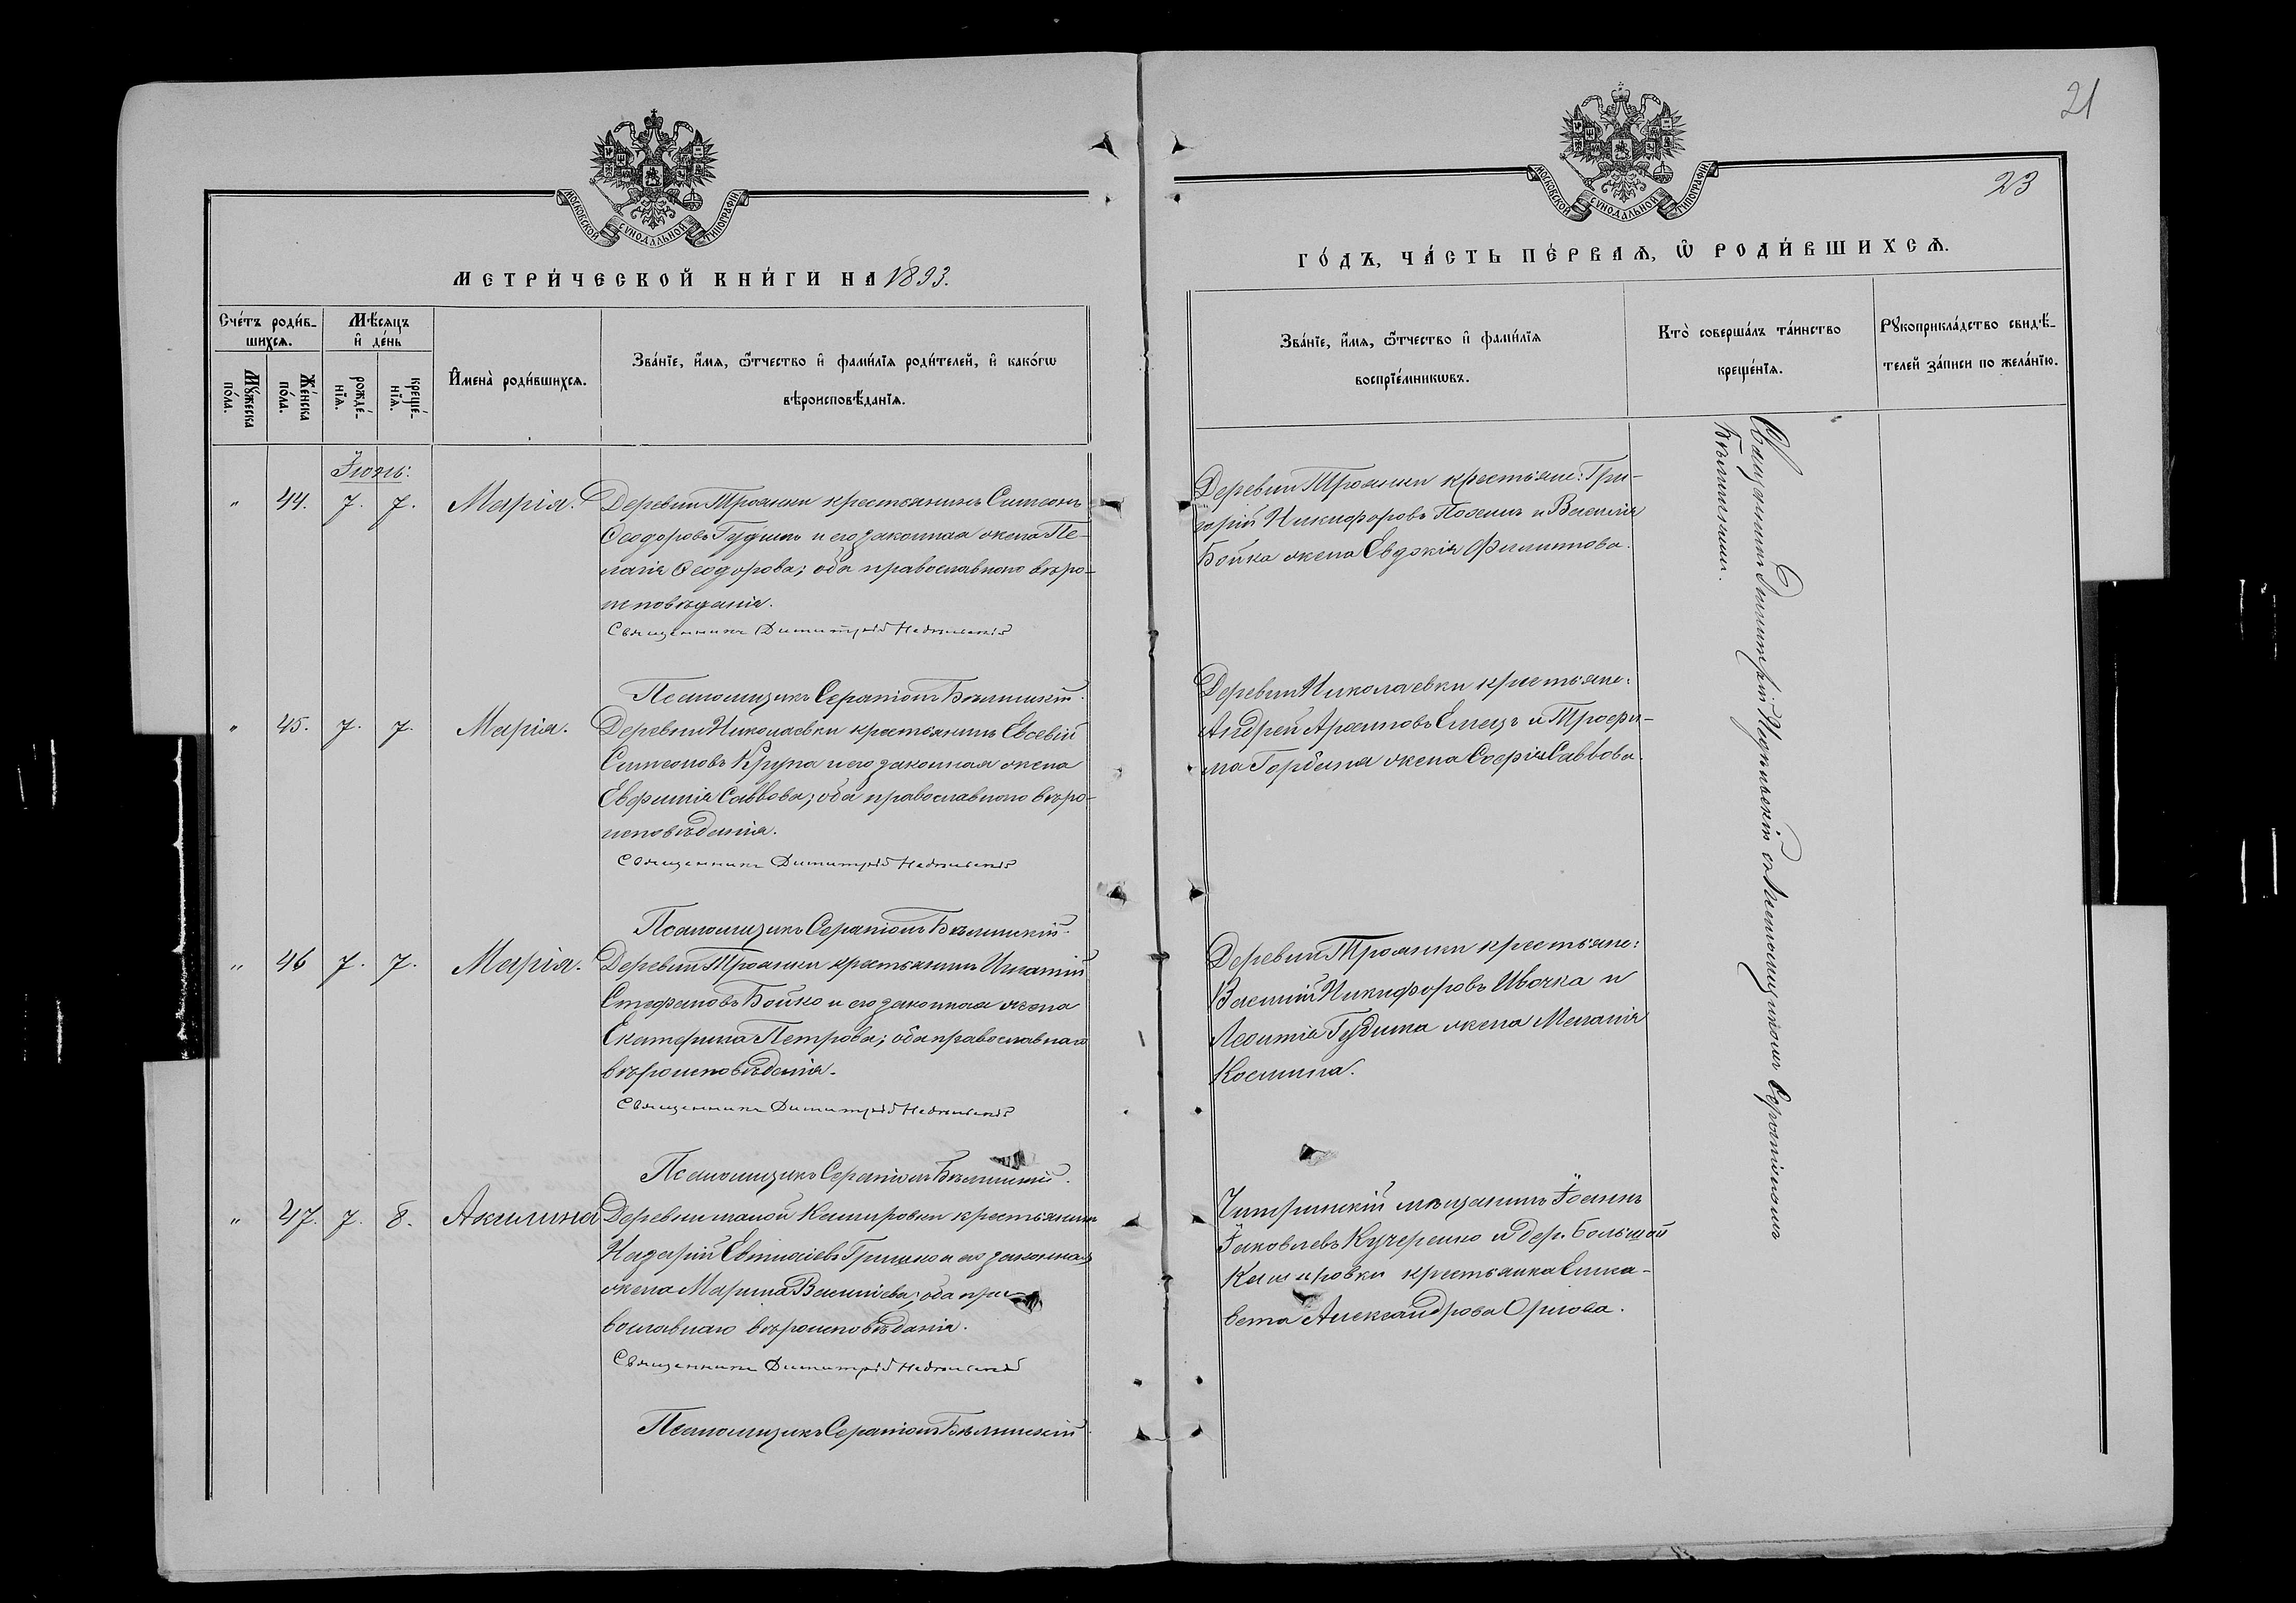 21
23
МОСКОВСКОЙ СУНОДАЛЬНОЙ ТИПОГРАФІИ
МОСКОВСКОЙ СУНОДАЛЬНОЙ ТИПОГРАФІИ
МЕТРИ́ЧЕСКОЙ КНИ́ГИ НА 1893.
ГО́ДЪ, ЧА́СТЬ ПЕ́РВАѦ, Ѿ РОДИ́ВШИХСѦ.
Сче́тъ роди́в-
шихсѧ.
Мꙋ́жеска
по́ла.
Же́нска
по́ла.
Мѣ́сѧцъ
и҆ де́нь
рожде́-
нїѧ.
креще́-
нїѧ.
И҆мена̀ роди́вшихсѧ.
Зва́нїе, и҆́мѧ, ѻ҆́тчество и҆ фами́лїѧ роди́телей, и҆ како́гѡ
вѣроисповѣ́данїѧ.
Зва́нїе, и҆́мѧ, ѻ҆́тчество и҆ фами́лїѧ
воспрїе́мникѡвъ.
Кто̀ соверша́лъ та́инство
креще́нїѧ.
Рꙋкоприкла́дство свидѣ́-
телей за́писи по жела́нїю.
Іюнь:
" 44. 7. 7. Марія. Деревни Троянки крестьянинъ Симеонъ
Ѳеодоровъ Гудима и его законная жена Пе-
лагія Ѳеодорова; оба православнаго вѣро-
исповѣданія.
Священникъ Димитрій Недѣльскій
Псаломщикъ Серапіонъ Бѣлинскій.
Деревни Троянки крестьяне: Гри-
горій Никифоровъ и Василія
Бойка жена Евдокія Филиппова.
" 45. 7. 7. Марія. Деревни Николаевки крестьянинъ Евсевій
Симеоновъ Крупа и его законная жена
Евфимія Саввова; оба православнаго вѣро-
исповѣданія.
Священникъ Димитрій Недѣльскій
Псаломщикъ Серапіонъ Бѣлинскій.
Деревни Николаевки крестьяне:
Андрей Емецъ и Трофи-
ма Горбаня жена Софія Саввова.
" 46 7. 7. Марія. Деревни Троянки крестьянинъ Игнатій
Стефановъ Бойко и его законная жена
Екатерина Петрова; оба православнаго
вѣроисповѣданія.
Священникъ Димитрій Недѣльскій
Псаломщикъ Серапіонъ Бѣлинскій.
Деревни Троянки крестьяне:
Василій Никифоровъ Ивочка и
Леонтія Гудима жена Меланія
Космина.
" 47. 7. 8. Акилина Деревни малой Кашировки крестьянинъ
Назарій Гришко и его законная
жена Марина Василіева; оба пра-
вославнаго вѣроисповѣданія.
Священникъ Димитрій Недѣльскій
Псаломщикъ Серапіонъ Бѣлинскій
мѣщанинъ Іоаннъ
Іаковлевъ Кучеренко и дер. Большой
Кашировки крестьянка Елиса-
вета Александрова Орлова.
Священникъ Димитрій Недѣльскій съ Псаломщикомъ Серапіономъ
Бѣлинскимъ.